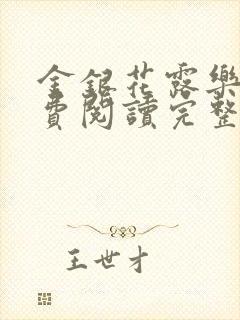 金銀花露樂
費閱讀完整
王世才